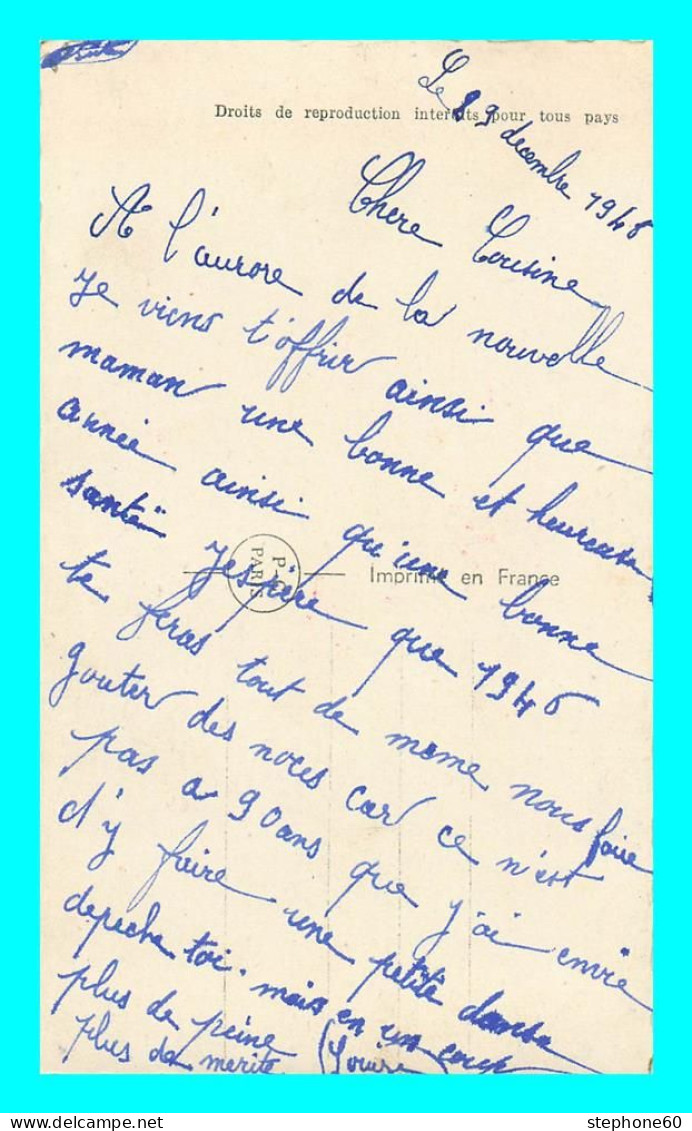 Droits de reproduction interdits pour tous pays
Le 29 decembre 1945
Chere Cousine
A l'aurore de la nouvelle
je viens t'offrir ainsi que
maman une bonne et heureuse
année ainsi qu'une bonne
santé j'espère que 1946
te feras tout de meme nous faire
gouter des noces car ce n'est
pas a 90 ans que j'ai envie
d'y faire une petite danse
depeche toi. mais en un coup
plus de peine
plus de merite
P-C
PARIS
Imprimé en France
stephone60